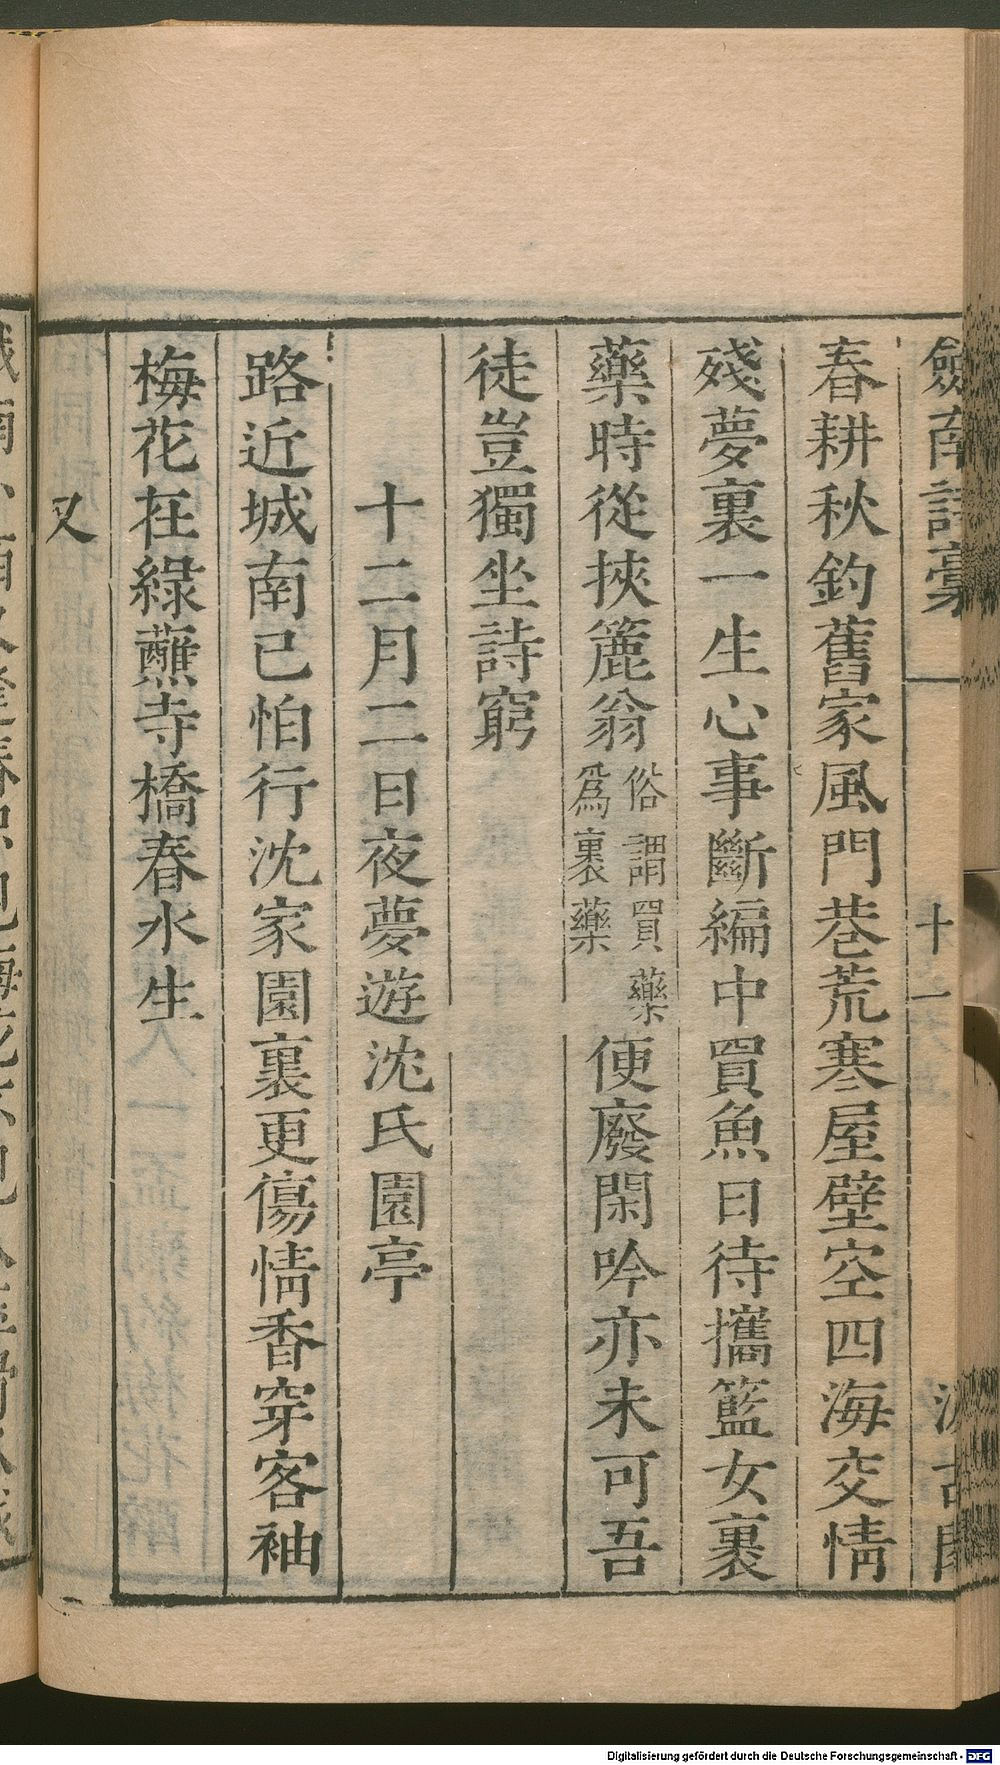 劒南詩稾
十一
春耕秋釣舊家風門巷荒寒屋壁空四海交情
殘夢裏一生心事斷編中買魚日待攜籃女裹
藥時從挾簏翁俗謂買藥爲裹藥便廢閑吟亦未可吾
徒豈獨坐詩窮
十二月二日夜夢遊沈氏園亭
路近城南已怕行沈家園裏更傷情香穿客袖
梅花在綠蘸寺橋春水生
又
Digitalisierung gefördert durch die Deutsche Forschungsgemeinschaft - DFG